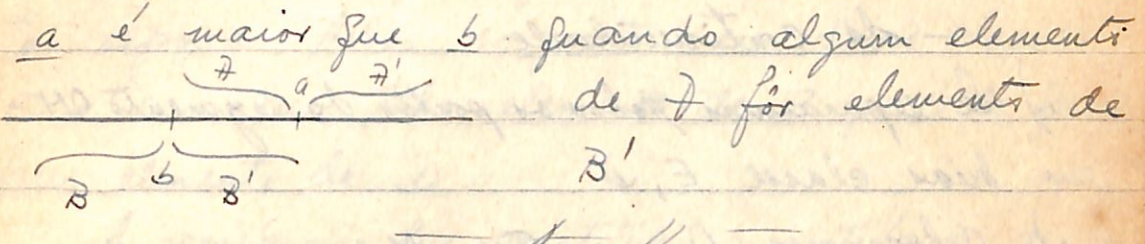 a é maior que b quando algum elemento
A a A' de A fôr elemento de
B b B' B'